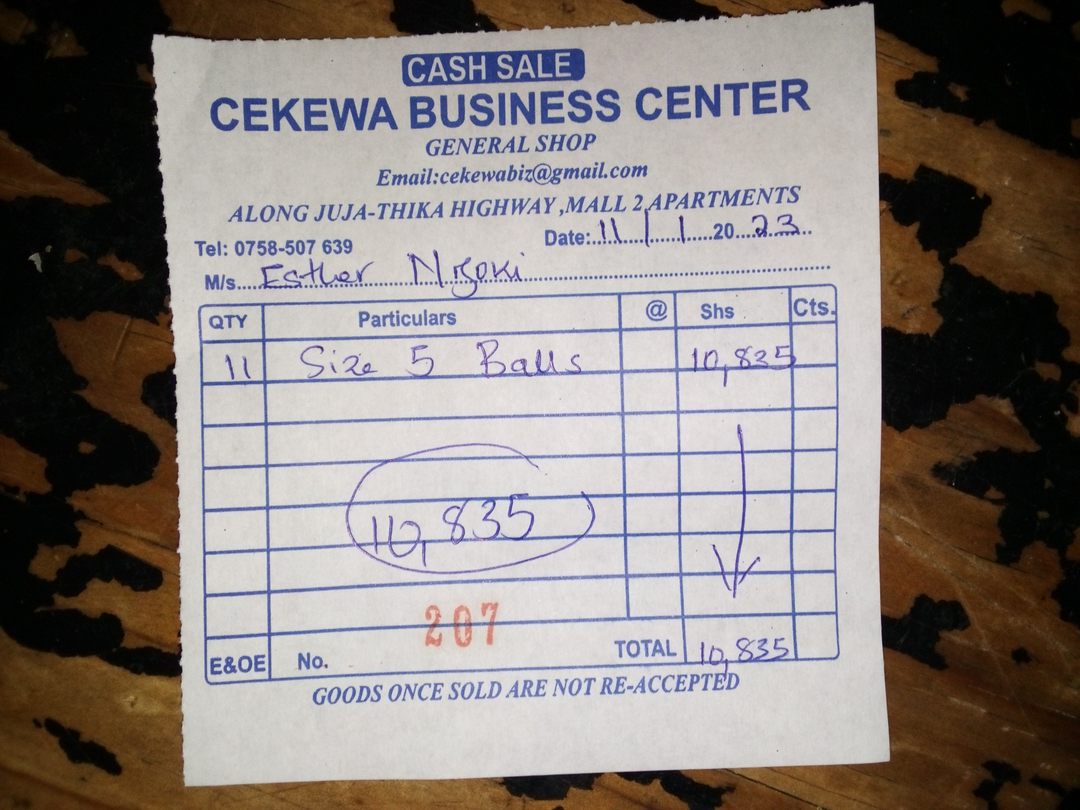 CASH SALE
CEKEWA BUSINESS CENTER
GENERAL SHOP
Email:cekewabiz@gmail.com
ALONG JUJA-THIKA HIGHWAY ,MALL 2 APARTMENTS
Tel: 0758-507 639 Date:..11../..1....20...23..
M/s...Esther Njoki...
QTY Particulars @ Shs Cts.
11 Size 5 Balls 10,835
10,835
207
E&OE No. TOTAL 10,835
GOODS ONCE SOLD ARE NOT RE-ACCEPTED